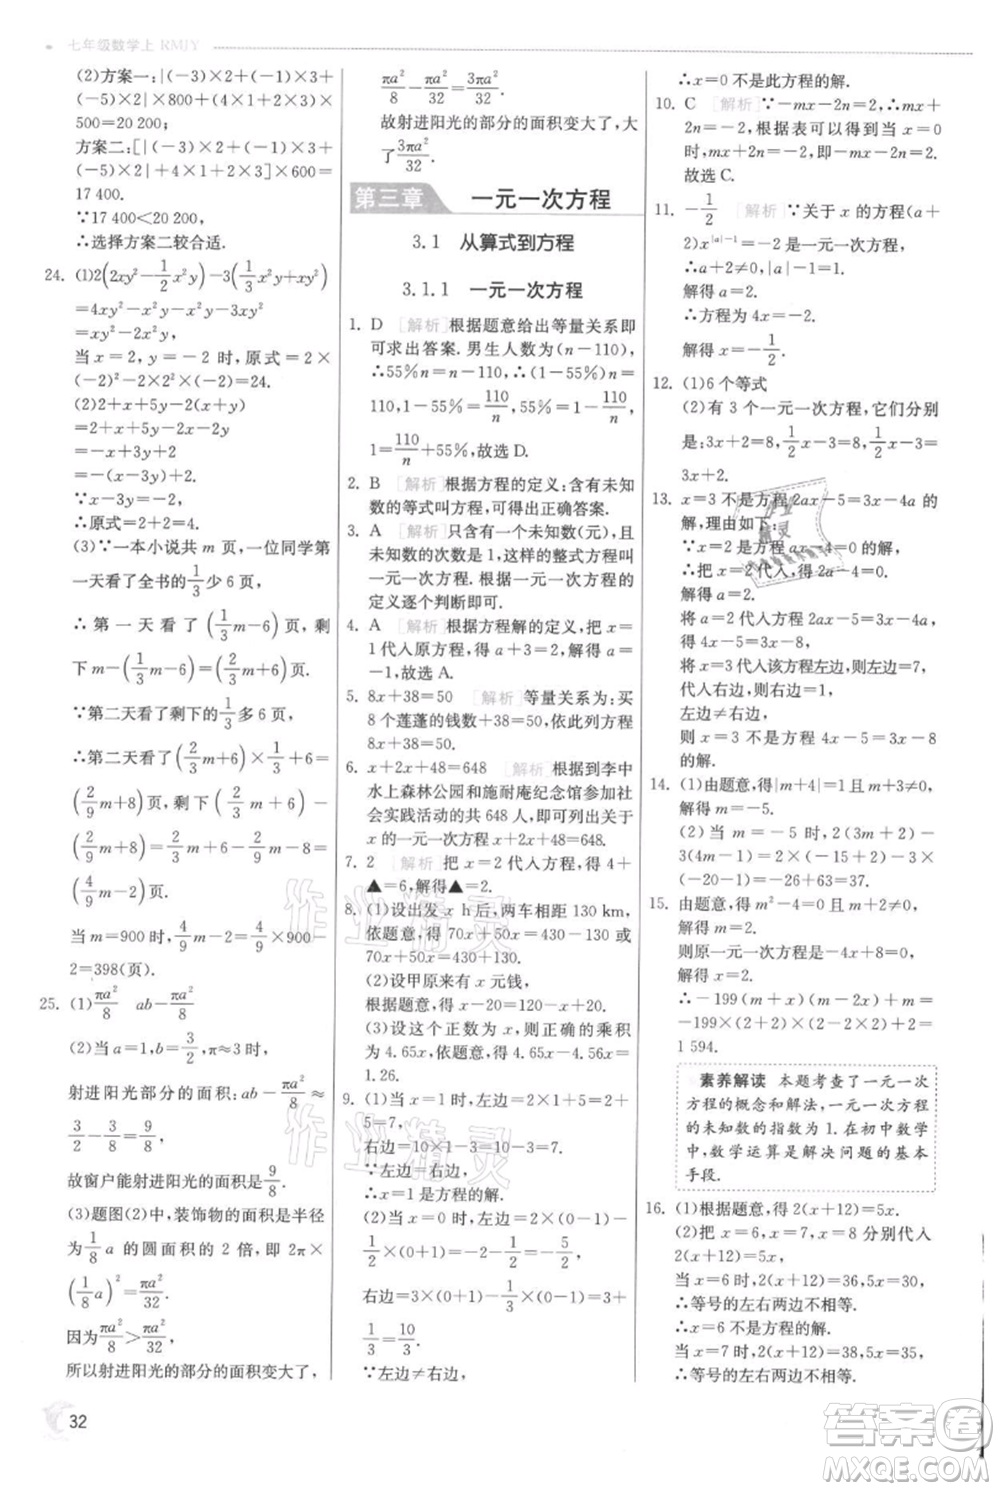 七年级数学上 RMJY
(2)方案一:|(－3)×2＋(－1)×3＋
(－5)×2|×800＋(4＋2＋1＋3)×
500＝20 200;
方案二:[|(－3)×2＋(－1)×3＋
(－5)×2|＋4＋2＋1＋3]×600＝
17 400.
∵17 400＜20 200,
∴选择方案二较合适.
24. (1)2(2xy²－1/2x²y)－3(1/3x²y＋xy²)
＝4xy²－x²y－x²y－3xy²
＝xy²－2x²y.
当 x＝2,y＝－2 时,原式＝2×
(－2)²－2×2²×(－2)＝24.
(2)2x＋x＋5y－2(2x＋2y)
＝2x＋x＋5y－4x－4y
＝－x＋y.
∵－x＋y＝2,
∴原式＝2.
(3)∵一本小说共 m 页,一位同学第
一天看了全书的1/3少 6 页,
∴ 第 一 天 看 了 (1/3m－6) 页, 剩
下 m－(1/3m－6)＝(2/3m＋6)页.
∵第二天看了剩下的1/3多 6 页,
∴第二天看了(2/3m＋6)×1/3＋6＝
(2/9m＋8)页,剩下(2/3m＋6)－
(2/9m＋8)＝2/3m＋6－2/9m－8＝
(4/9m－2)页.
当 m＝900 时,4/9m－2＝4/9×900－
2＝398(页)
25. (1)πa²/8 ab－πa²/8
(2)当 a＝1,b＝3/2,π≈3 时,
射进阳光部分的面积:ab－πa²/8≈
3/2－3/8＝9/8,
故窗户能射进阳光的面积是9/8.
(3)题图(2)中,装饰物的面积是半径
为1/8a 的圆面积的 2 倍,即 2π×
(1/8a)²＝πa²/32.
因为πa²/8＞πa²/32,
所以射进阳光的部分的面积变大了,
πa²/8－πa²/32＝3πa²/32.
故射进阳光的部分的面积变大了,大
了3πa²/32.
第三章 一元一次方程
3.1 从算式到方程
3.1.1 一元一次方程
1. D [解析]根据题意给出等量关系即
可求出答案.男生人数为(n－110),
∴55%n＝n－110,∴(1－55%)n＝
110,1－55%＝110/n,55%＝1－110/n,
1＝110/n＋55%,故选 D.
2. B [解析]根据方程的定义:含有未知
数的等式叫方程,可得出正确答案.
3. A [解析]只含有一个未知数(元),且
未知数的次数是 1,这样的整式方程叫
一元一次方程. 根据一元一次方程的
定义逐个判断即可.
4. A [解析]根据方程解的定义,把 x＝
1代入原方程,得 a＋3＝2,解得 a＝
－1,故选 A.
5. 8x＋38＝50 [解析]等量关系为:买
8 个莲蓬的钱数＋38＝50,依此列方程
8x＋38＝50.
6. x＋2x＋48＝648 [解析]根据到李中
水上森林公园和施耐庵纪念馆参加社
会实践活动的共 648 人,即可列出关于
x 的一元一次方程 x＋2x＋48＝648.
7. 2 [解析]把 x＝2代入方程,得 4＋
▲＝6,解得▲＝2.
8. (1)设出发 x h后,两车相距 130 km,
依题意,得 70x＋50x＝430－130 或
70x＋50x＝430＋130.
(2)设甲原来有 x 元钱,
根据题意,得 x－20＝120%×50＋20.
(3)设这个正数为 x,则正确的乘积
为 4.65x,依题意,得 4.65x－4.6x＝
1.26.
9. (1)当 x＝3 时,左边＝2×(3＋2)＝
10,
右边＝10×3÷(3×1)＝10,
∵左边＝右边,
∴x＝3 是方程的解.
(2)当 x＝0 时,左边＝2×(0－2)－
3×(0＋1/3)－1＝－2－3＝－5,
右边＝3×(0＋1)－1/3×(0－1)＝3＋
1/3＝10/3.
∵左边≠右边,
∴x＝0 不是此方程的解.
10. C [解析]∵－mx－2n＝2,∴mx＋
2n＝－2,根据表可以得到当 x＝0
时,mx＋2n＝－2,即－mx－2n＝2.
故选 C.
11. －1/2 [解析]∵关于 x 的方程(a＋
2)x^|a|－1＝－2是一元一次方程,
∴a＋2≠0且|a|－1＝1,
解得 a＝2.
∴方程为 4x＝－2.
解得 x＝－1/2.
12. (1)6 个等式
(2)有 3 个一元一次方程,它们分别
是:3x＋2＝8,1/2x＋2＝8,1/2x＝
3x＋2.
13. x＝3 不是方程 2ax－5＝3x－4a 的
解,理由如下:
∵x＝2 是方程 ax－4＝0 的解,
∴把 x＝2代入,得 2a－4＝0.
解得 a＝2.
将 a＝2代入方程 2ax－5＝3x－4a,
得 4x－5＝3x－8.
将 x＝3代入该方程左边,则左边＝7,
代入右边,则右边＝1,
左边≠右边,
则 x＝3 不是方程 4x－5＝3x－8
的解.
14. (1)由题意,得|m＋4|＝1,m＋3≠0,
解得 m＝－5.
(2) 当 m ＝－5 时,2(3m＋2)－
3(4m－1)＝2×(－15＋2)－3×
(－20－1)＝－26＋63＝37.
15. 由题意,得 m²－4＝0,且 m＋2≠0,
解得 m＝2.
则原一元一次方程为－4x＋8＝0,
解得 x＝2.
∴－199(m＋x)(x－2m)＋3m＋4＝
－199×(2＋2)×(2－2×2)＋2＝
1 594.
素养解读 本题考查了一元一次
方程的概念和解法,一元一次方程
的未知数的指数为 1.在初中数学
中,数学运算是解决问题的基本
手段.
16. (1)根据题意,得 2(x＋12)＝5x.
(2)把 x＝6,x＝7,x＝8 分别代入
2(x＋12)＝5x,
当 x＝6 时,2(x＋12)＝36,5x＝30,
∴等号的左右两边不相等.
∴x＝6 不是方程的解.
当 x＝7 时,2(x＋12)＝38,5x＝35,
∴等号的左右两边不相等.
32
作业精灵
作业精灵
作业精灵
答案圈
MXQE.COM